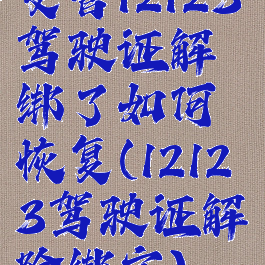 交管12123
驾驶证解
绑了如何
恢复(1212
3驾驶证解
除绑定)